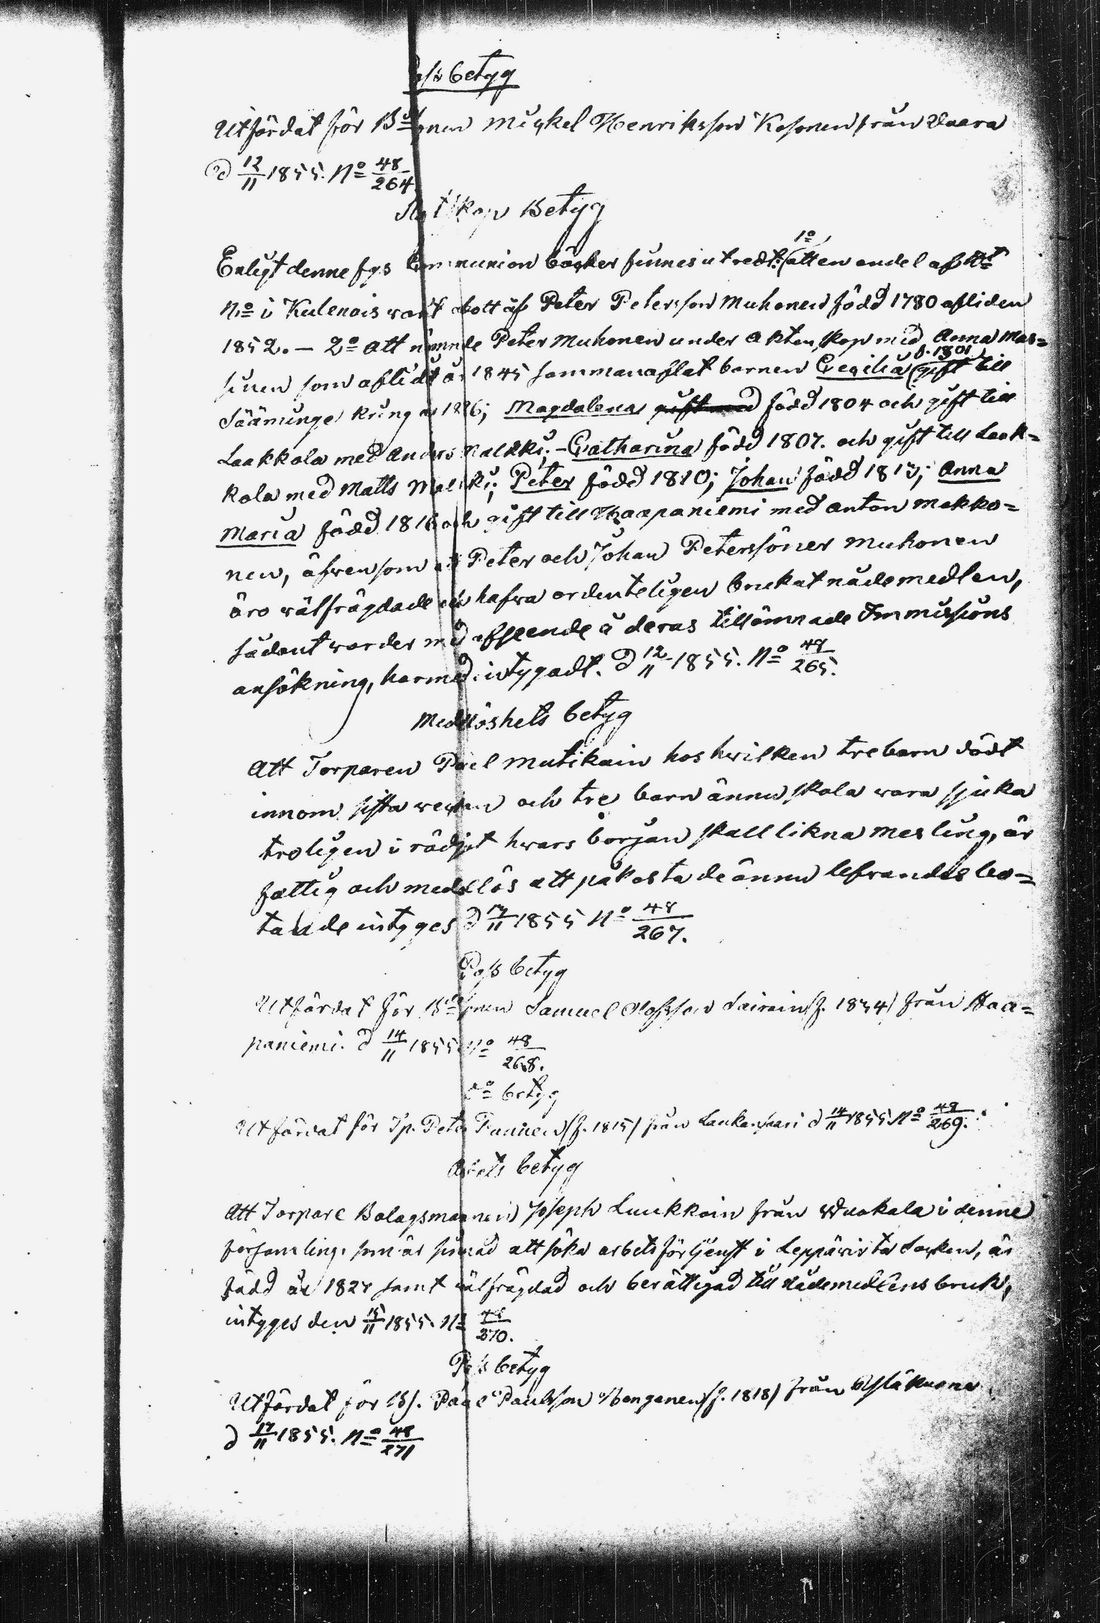 Pass betyg
Utfärdat för B sonen Mickel Henriksson Kosonen från Vaara
d 12/11 1855. No 48/264
Slagtskap Betyg
Enligt denne fgs Communion böcker finnes utredt: 1o att en andel af
No i Kulenois warit af Peter Petersson Muhonen född 1780 afliden
1852. – 2o att nämnde Peter Muhonen under äktenskap med Anna Mas=
sinen som aflidit år 1845 sammanaflat barnen Cecilia f. 1801 gift till
Sääminge kring år 1826; Magdalena gift med född 1804 och gift till
Laakkola med Anders Malkki; – Catharina född 1807. och gift till Laak=
kola med Matts Malkki; Peter född 1810; Johan född 1813; Anna
Maria född 1816 och gift till Haapaniemi med Anton Makko=
nen, äfvensom att Peter och Johan Peterssöner Muhonen
äro wälfrägdade och hafva ordenteligen brukat nådemedlen,
sådant warder med afseende å deras tillämnade Immissions
ansökning, harmed intygadt. d 12/11 1855. No 48/265.
Medellöshets betyg
Att Torparen Påel Mutikain hos hwilken tre barn dödt
innom sista weckan och tre barn ännu skola wara sjuka
troligen i rödsot hwars början skall likna mesling, är
fattig och medellös att påkosta de ännu lefvandes bo=
tande intyges d 13/11 1855 No 48/267.
Pass betyg
Utfärdat för B sonen Samuel Olofsson Lairain (f. 1834) från Haa=
paniemi. d 14/11 1855 No 48/268.
Do betyg
Utfärdat för Tp. Peter (f. 1815) från Laukansaari d 14/11 1855 No 48/269.
Arbets betyg
Att Torpare Bolagsmannen Joseph Luukkain från Wuokala i denne
församling, som är sinnad att söka arbetsförtjenst i Leppävirta Socken, är
född år 1827 samt wälfrägdad och berättigad till nådemedlens bruk,
intyges den 15/11 1855. No 48/270.
Pass betyg
Utfärdat för Bs. Påel Paulsson (f. 1818) från
d 17/11 1855. No 48/271